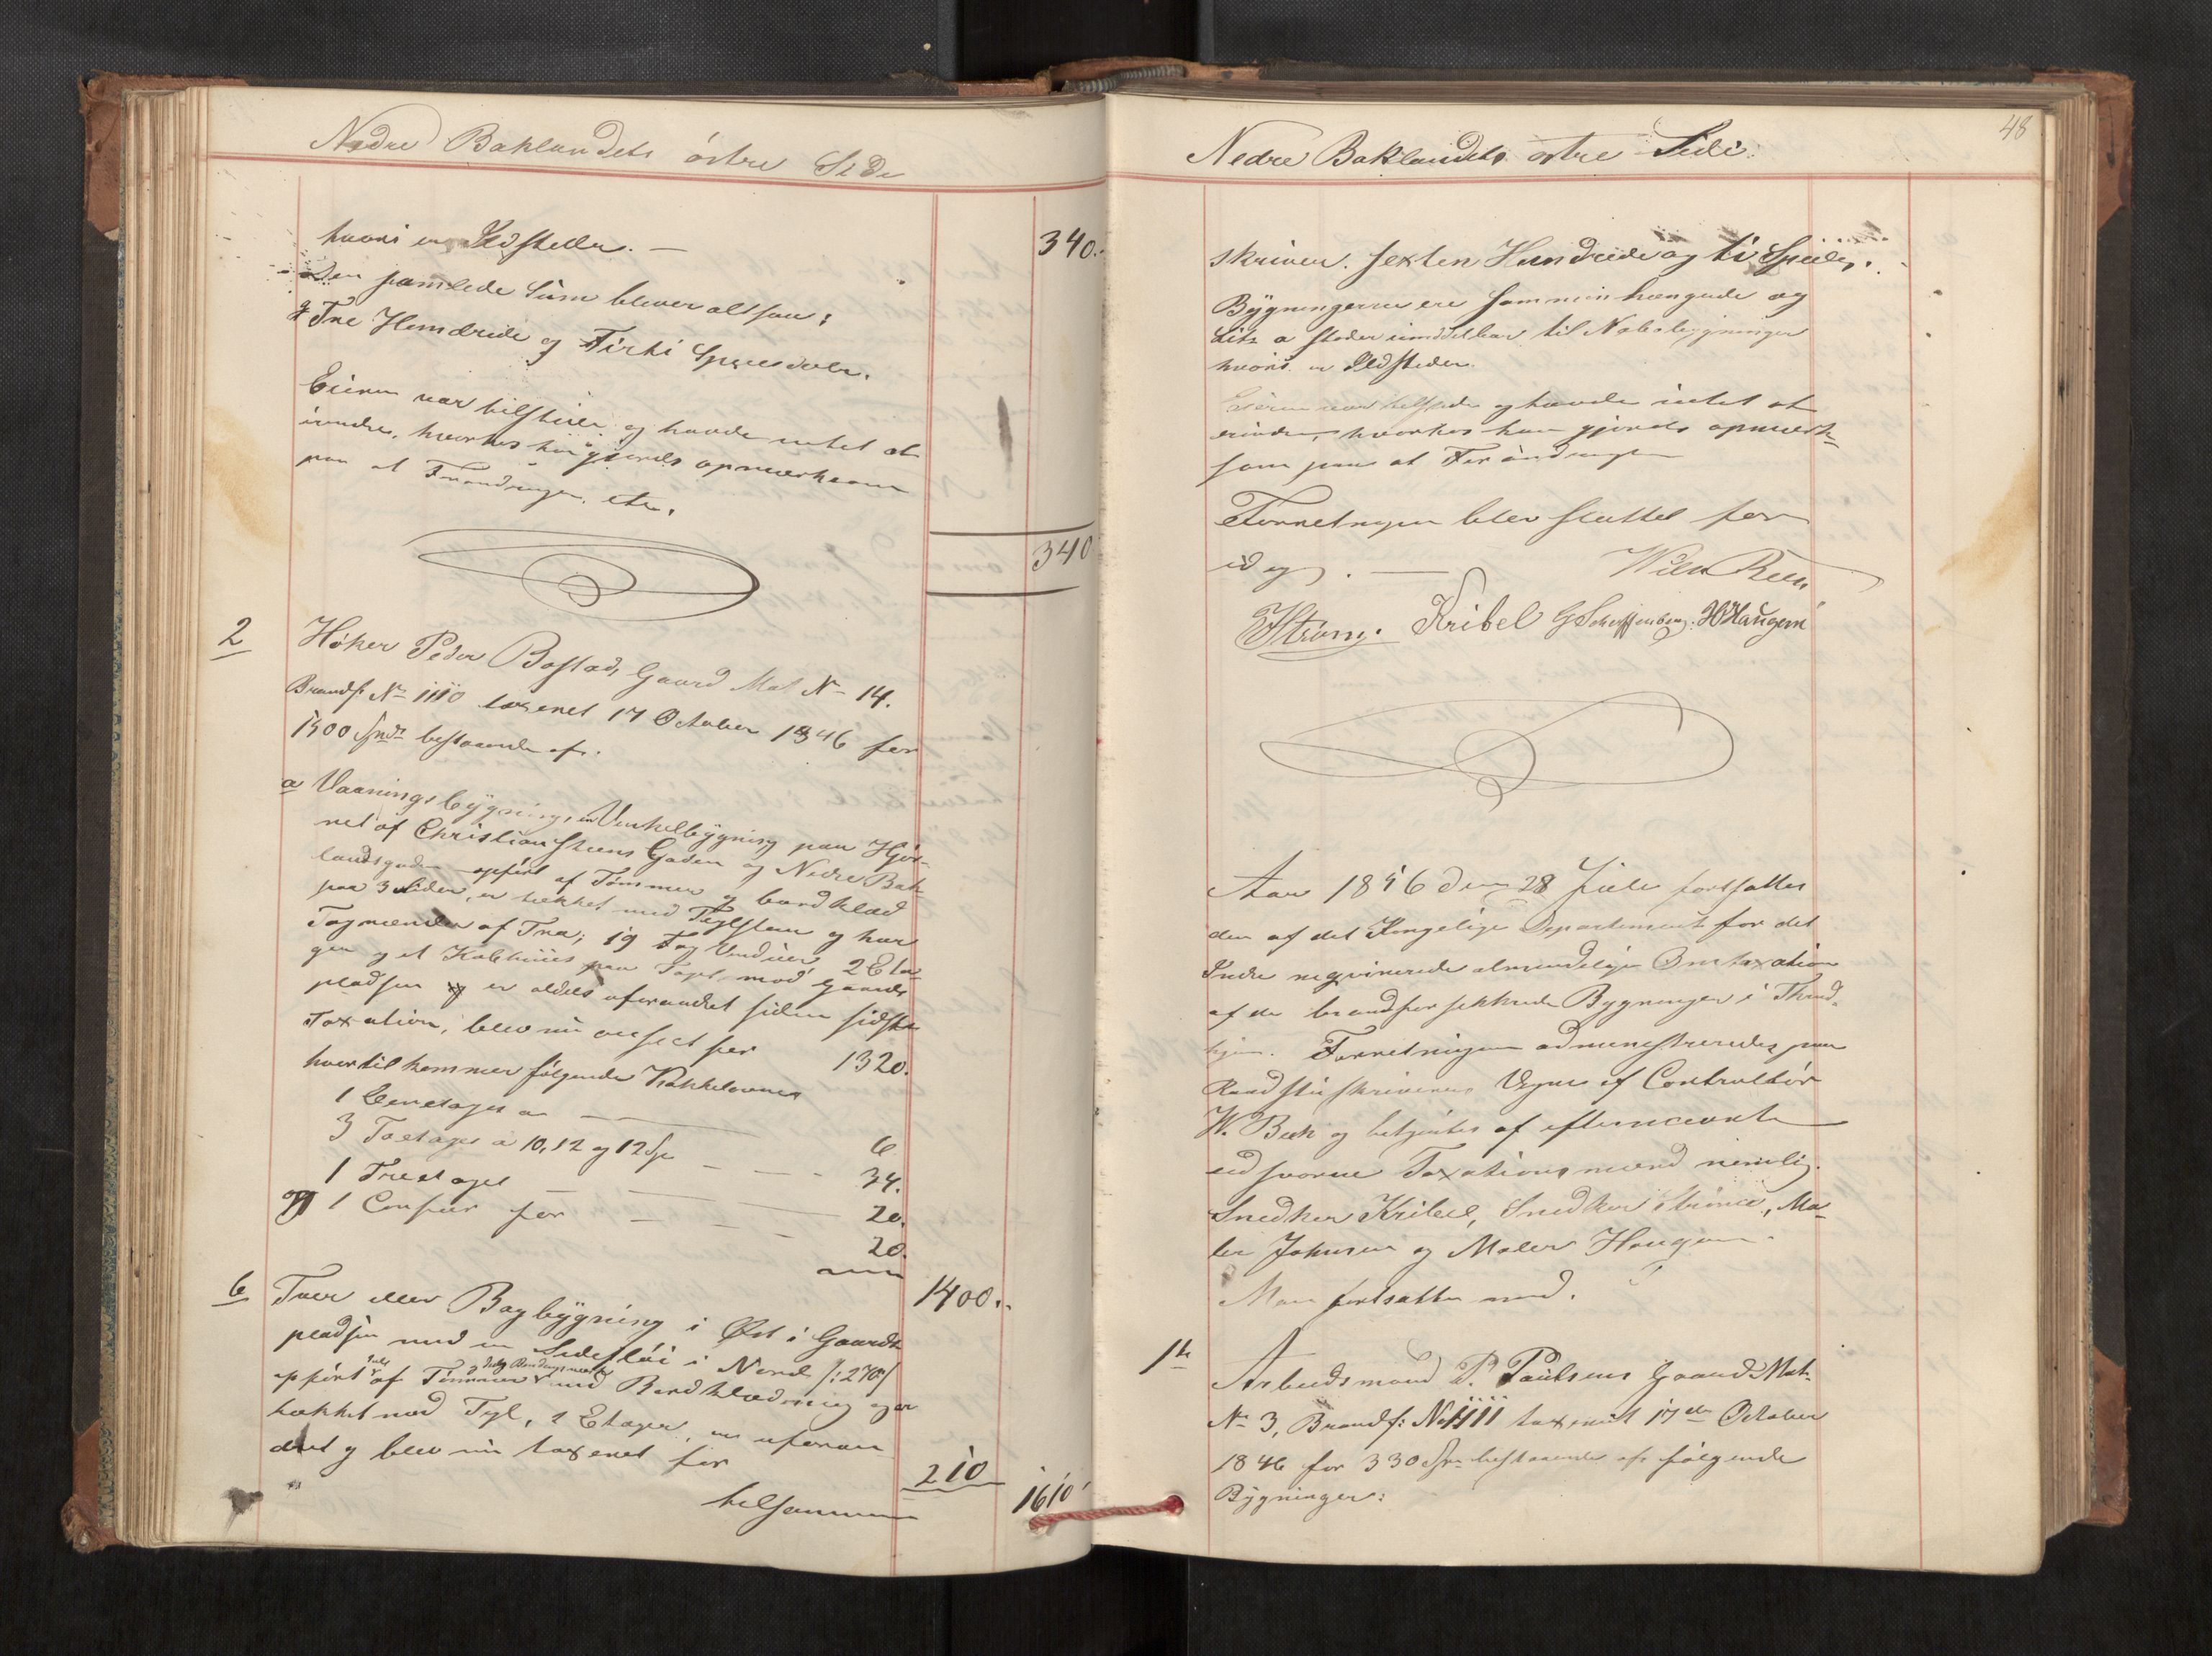 Nedre Baklandets östre Side
hvori er Ildsteder. — 340.
Den samlede Sum bliver altsaa:
Tre Hundrede og Firti Speciedaler.
Eieren var tilstede og havde intet at
erindre, hvorhos hun gjordes opmærksom
paa at Forandringer, etc.
340
2 Høker Peder Bostads Gaard Mat No 14.
Brandf: No 1110 taxeret 17 October 1846 for
1500 Spdr bestaaende af:
a Vaaningsbÿgning, en Vinkelbÿgning paa Hjör-
net af Christiansteens Gaden og Nedre Bak-
landsgaden opfört af Tömmer og bordklæd
paa 3 Sider, er tækket med Teglsteen og har
Tagrender af Træ; 19 Fag Vinduer, 2 Eta-
ger og et Kobhuus paa Taget mod Gaards-
pladsen er aldeles uforandret siden sidste
Taxation, blev nu ansat for 1320.
hvortil kommer fölgende Kakkelovne
1 Eenetages a — 6
3 Toetages a 10, 12 og 12 Sp — 34.
1 Treetages — 20.
og 1 Comfur for — 20.
1400.
b Tver eller Bagbÿgning i Öst i Gaards-
pladsen med en Sideflöi i Nord /: 270 /
opfört af Tömmer deels Bindingsværk med Bordklædning og er
tækket med Tegl, 2 Etager, er uforan-
dret og blev nu taxeret for 210
tilsammen 1610
48
Nedre Baklandets östre Side.
skriver. sexten Hundrede og ti Specielr.
Bÿgningerne ere sammenhængende og
Litr a stöder umiddelbar til Nabobygninger
hvori er Ildsteder.
Eieren var tilstede og havde intet at
erindre, hvorhos han gjordes opmærk-
som paa at Forandringer
Forretningen blev sluttet for
idag. — Wilh Beck
Ström. Kribel G Scheffenberg. H Haugen
Aar 1856 den 28 Juli fortsattes
den af det Kongelige Departement for det
Indre reqvirerede almindelige Omtaxation
af de brandforsikkrede Bygninger i Thrond-
hjem. Forretningen administreredes paa
Raadstuskriverens Vegne af Controllör
W. Beck og betjentes af efternævnte
edsvorne Taxationsmænd nemlig.
Snedker Kribel, Snedker Ström, Ma-
ler Johnsen og Maler Haugen.
Man fortsatte med.
1te Arbeidsmand P. Paulsens Gaard Mat-
No 3, Brandf: No 1111 taxeret 17de October
1846 for 330 Spd bestaaende af fölgende
Bÿgninger: